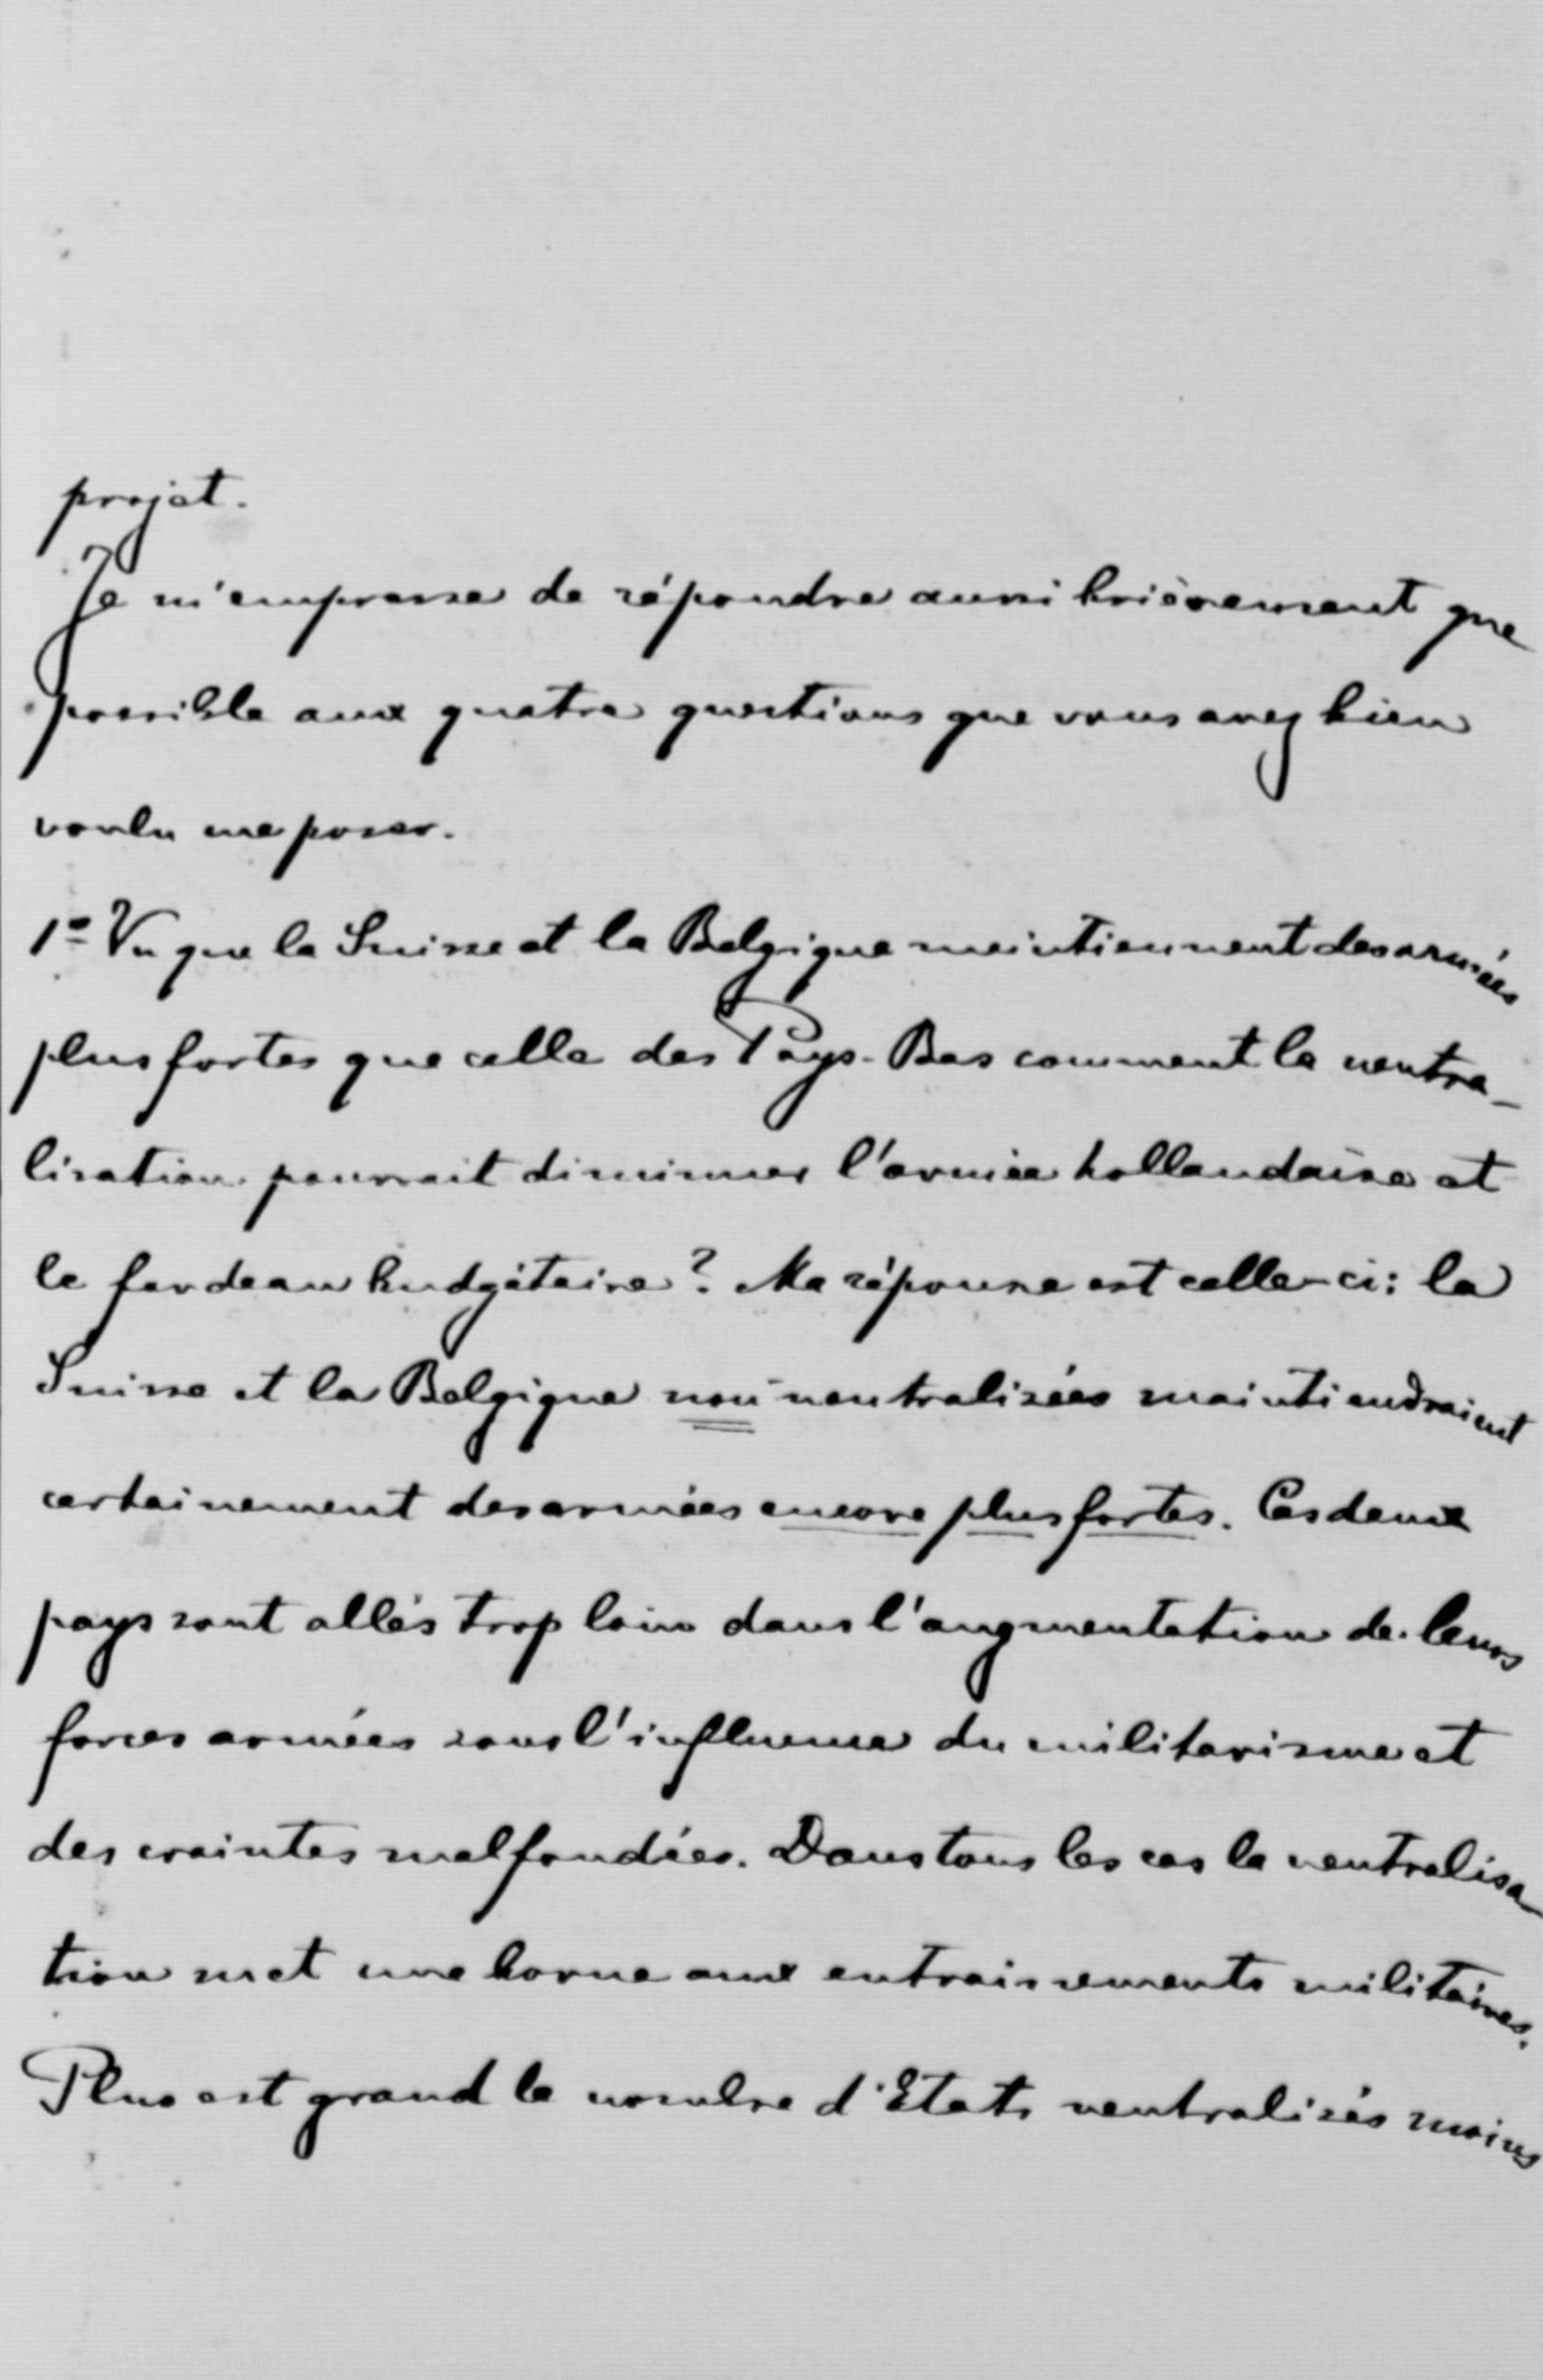 projet.
Je m'empresse de répondre aussi brièvement que
possible aux quatre questions que vous avez bien
voulu me poser.
1º Vu que la Suisse et la Belgique maintiennent des armées
plus fortes que celle des Pays-Bas comment la neutra-
lisation pourrait diminuer l'armée hollandaise et
le fardeau budgétaire? Ma réponse est celle-ci: la
Suisse et la Belgique non neutralisées maintiendraient
certainement des armées encore plus fortes. Ces deux
pays sont allés trop loin dans l'augmentation de leurs
forces armées sous l'influence du militarisme et
des craintes mal fondées. Dans tous les cas la neutralisa-
tion met une borne aux entrainements militaires.
Plus est grand le nombre d'Etats neutralisés moins